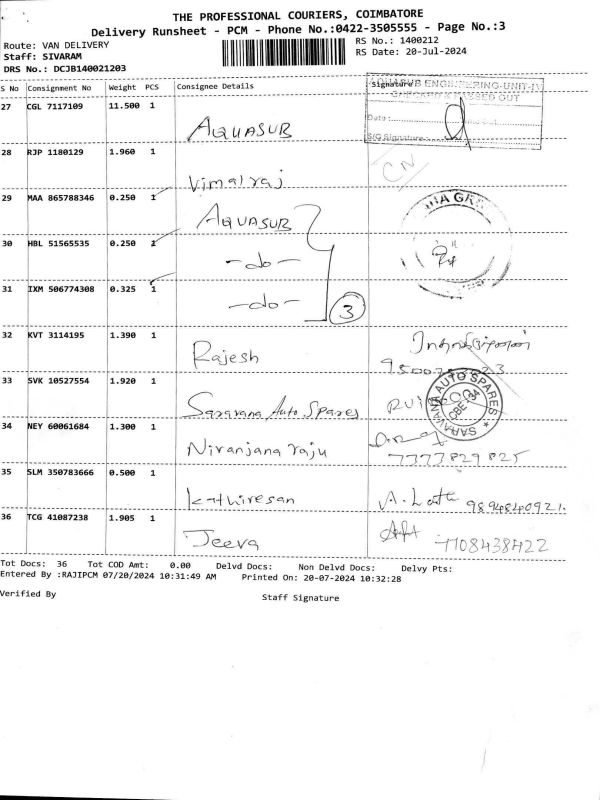 THE PROFESSIONAL COURIERS, COIMBATORE
Delivery Runsheet - PCM - Phone No.:0422-3505555 - Page No.:3
Route: VAN DELIVERY
RS No.: 1400212
Staff: SIVARAM
RS Date: 20-Jul-2024
DRS No.: DCJB140021203
S No Consignment No Weight PCS Consignee Details Signature
27 CGL 7117109 11.500 1 AQUASUB
AQUASUB ENGINEERING-UNIT-IV
Date:
SIG Signature:
28 RJP 1180129 1.960 1 Vimalraj CN
29 MAA 865788346 0.250 1 AQUASUB
30 HBL 51565535 0.250 1 -do-
31 IXM 506774308 0.325 1 -do- 3
32 KVT 3114195 1.390 1 Rajesh
33 SVK 10527554 1.920 1 Saravana Auto Spares
SARAVANA AUTO SPARES
CBE-34
34 NEY 60061684 1.300 1 Niranjana raju
7373829825
35 SLM 350783666 0.500 1 kathiresan
9894840921
36 TCG 41087238 1.905 1 Jeeva 7708438422
Tot Docs: 36 Tot COD Amt: 0.00 Delvd Docs: Non Delvd Docs: Delvy Pts:
Entered By :RAJIPCM 07/20/2024 10:31:49 AM Printed On: 20-07-2024 10:32:28
Verified By Staff Signature